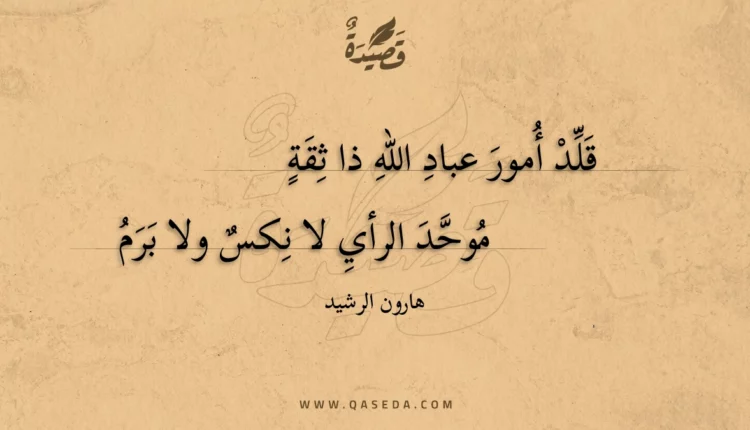 قَصِيْدَةٌ
قَلِّدْ أُمورَ عبادِ اللهِ ذا ثِقَةٍ
مُوحَّدَ الرأيِ لا نِكسٌ ولا بَرَمُ
هارون الرشيد
WWW.QASEDA.COM